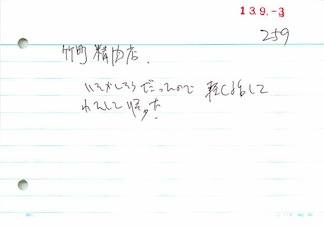 13.9.-3
259
竹町 精肉店.
いそがしそうだったので 軽く話して
わたして帰った